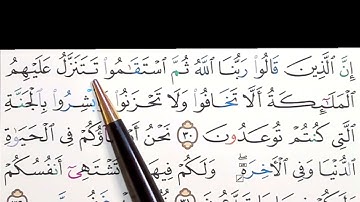 إِنَّ الَّذِينَ قَالُوا رَبُّنَا اللَّهُ ثُمَّ اسْتَقَامُوا تَتَنَزَّلُ عَلَيْهِمُ
الْمَلَائِكَةُ أَلَّا تَخَافُوا وَلَا تَحْزَنُوا وَأَبْشِرُوا بِالْجَنَّةِ
الَّتِي كُنْتُمْ تُوعَدُونَ ٣٠ نَحْنُ أَوْلِيَاؤُكُمْ فِي الْحَيَوٰةِ
الدُّنْيَا وَفِي الْآخِرَةِ ۖ وَلَكُمْ فِيهَا تَشْتَهِي أَنْفُسُكُمْ